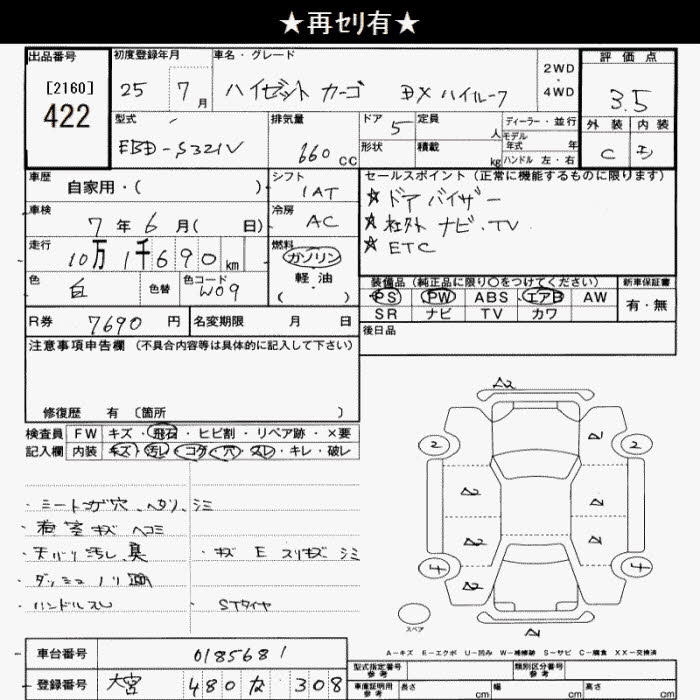 ★再セリ有★
出品番号 初度登録年月 車名・グレード 評価点
[2160] 25 7月 ハイゼット カーゴ DX ハイルーフ 2WD・4WD 3.5
422
型式 排気量 ドア 定員 ディーラー・並行 外装 内装
EBD-S321V 660cc 5 人 モデル年式 年 C D
形状 積載 kg ハンドル 左・右
車歴 自家用・( ) シフト 1AT セールスポイント(正常に機能するものに限ります)
★ ドアバイザー
車検 7年6月( 日) 冷房 AC ★ 社外 ナビ・TV
走行 10万1千690km 燃料 ガソリン ★ ETC
軽・油
( )
色 白 色替 色コード W09 装備品(純正品に限り○をつけてください) 新車保証書
PS PW ABS エアB AW 有・無
R券 7690円 名変期限 月 日 SR ナビ TV カワ
後日品
注意事項申告欄 (不具合内容等は具体的に記入して下さい)
修復歴 有 〔箇所 〕
検査員 FW キズ・飛石・ヒビ割・リペア跡・×要
記入欄 内装 キズ・汚レ・コゲ・穴・スレ・キレ・破レ
A2
2 A1 2
A2 A1
A2 A1
4 A2 4
A1
スペア
・シートコゲ穴、ヘタリ、シミ
・荷室キズ ヘコミ
・天バリ汚レ、臭 ・キズ E スリキズ シミ
・ダッシュ ノリ跡
・ハンドルスレ ・STタイヤ
A-キズ E-エクボ U-凹み W-補修跡 S-サビ C-腐食 XX-交換済
車台番号 0185681 型式指定番号 参考 類別区分番号 参考
登録番号 大宮 480 な 308 車庫証明用 参考 長さ cm 幅 cm 高さ cm